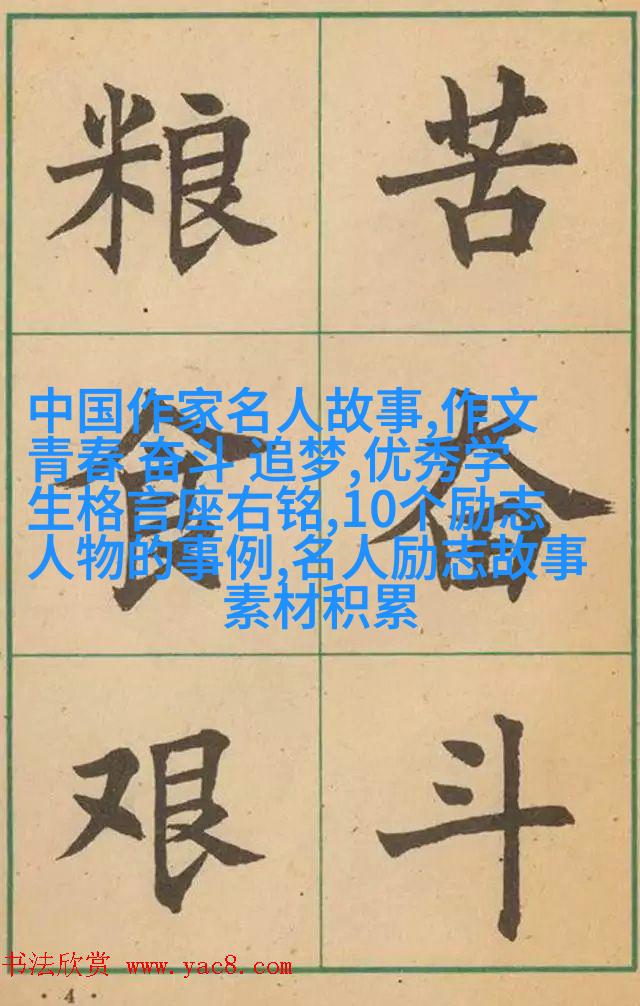 粮 苦
食 奋
艰 斗
中国作家名人故事,作文
青春 奋斗 追梦,优秀学
生格言座右铭,10个励志
人物的事例,名人励志故事
素材积累
书法欣赏 www.yac8.com
· 4 ·